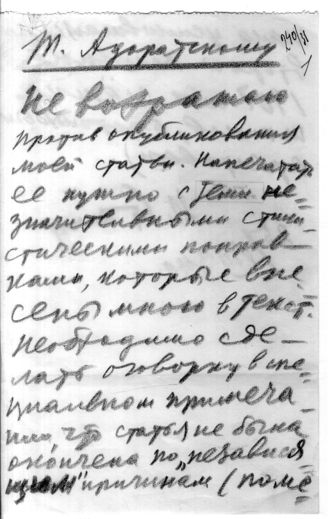 240/31
1
Т. Адоратскому
Не возражаю
против опубликования
моей статьи. Напечатать
ее нужно с теми не-
значительными стили-
стическими поправ-
ками, которые вне-
сены мною в текст.
Необходимо сде-
лать оговорку в спе-
циальном примеча-
нии, что статья не была
окончена по „независя-
щим" причинам (поме-